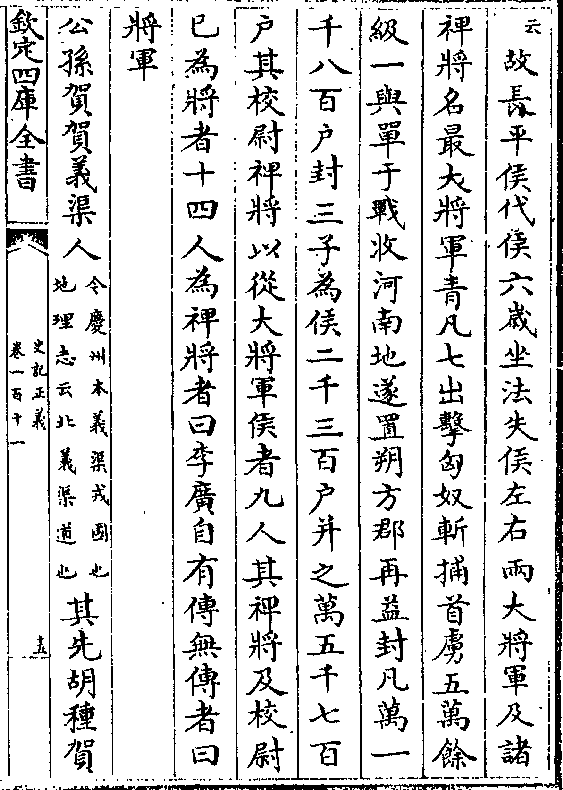 云故長平侯代侯六歲坐法失侯左右兩大將軍及諸
裨將名最大將軍青凡七出擊匈奴斬捕首虜五萬餘
級一與單于戰收河南地遂置朔方郡再益封凡萬一
千八百户封三子為侯二千三百户并之萬五千七百
户其校尉裨將以從大將軍侯者九人其裨將及校尉
已為將者十四人為裨將者曰李廣自有傳無傳者曰
將軍
公孫賀賀義渠人
今慶州本義渠戎國也
地理志云北義渠道也
其先胡種賀
欽定四庫全書
史記正義
卷一百十一
十五